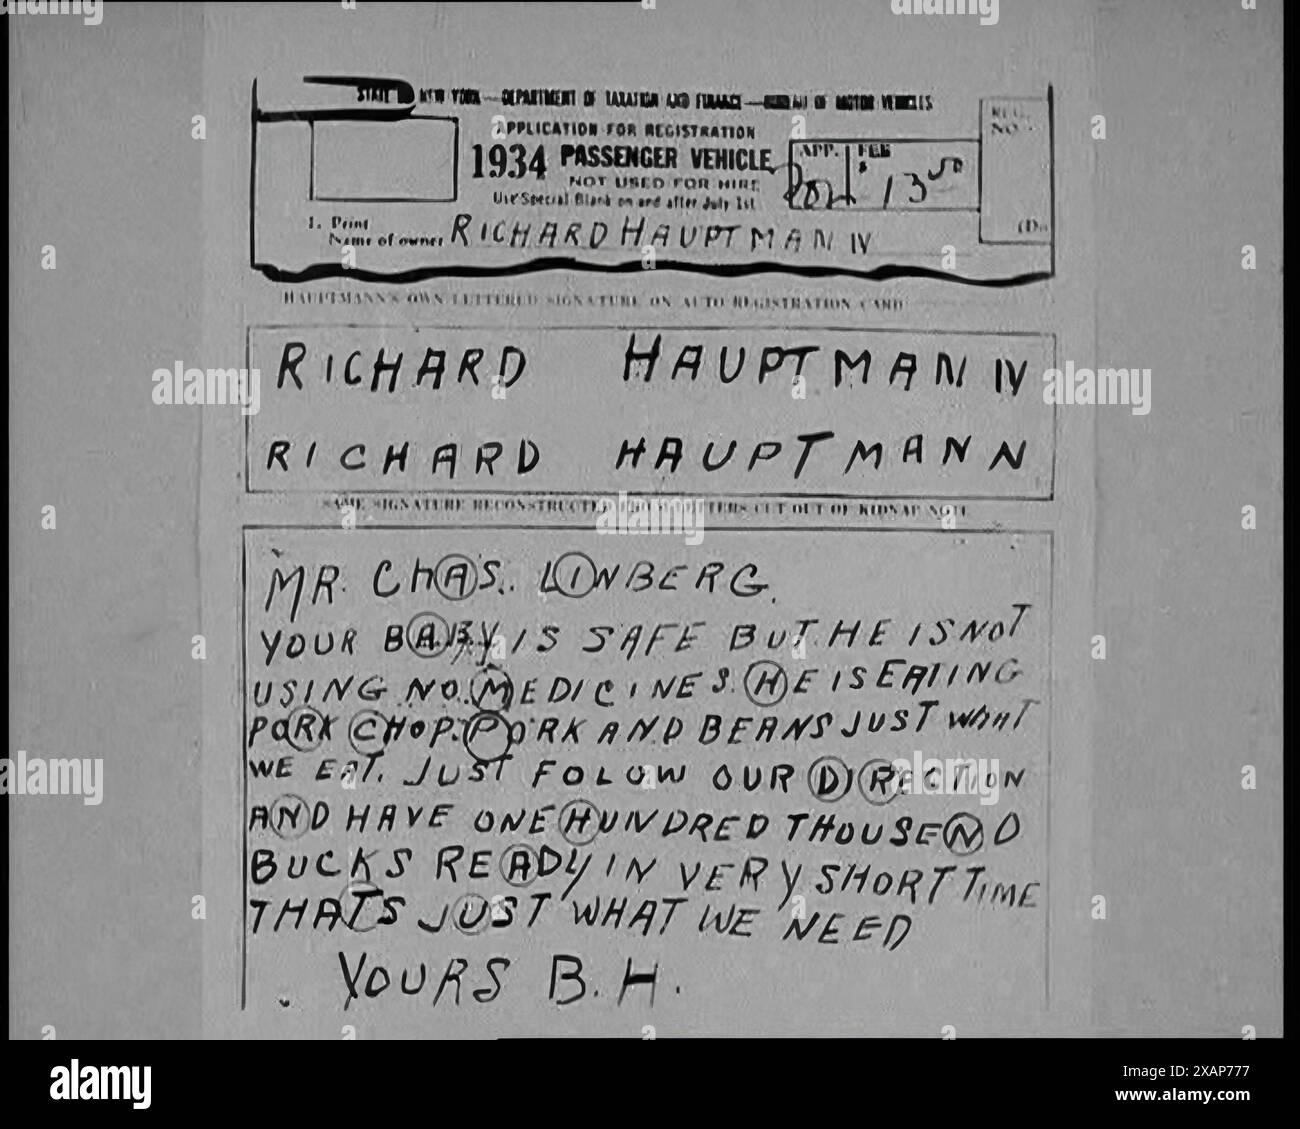 STATE OF NEW YORK—DEPARTMENT OF TAXATION AND FINANCE—BUREAU OF MOTOR VEHICLES
APPLICATION FOR REGISTRATION
1934 PASSENGER VEHICLE
NOT USED FOR HIRE
Use Special Blank on and after July 1st
APP. FEE
$ 13 50
REG.
NO.
1. Print
Name of owner RICHARD HAUPTMAN IV
HAUPTMANN'S OWN LETTERED SIGNATURE ON AUTO REGISTRATION CARD
RICHARD HAUPTMAN IV
RICHARD HAUPTMANN
SAME SIGNATURE RECONSTRUCTED FROM LETTERS CUT OUT OF KIDNAP NOTE
MR. CHAS. LINBERG.
YOUR BABY IS SAFE BUT HE IS NOT
USING NO MEDICINES. HE IS EATING
PORK CHOP. PORK AND BEANS JUST WHAT
WE EAT. JUST FOLOW OUR DIRECTION
AND HAVE ONE HUNDRED THOUSEND
BUCKS READY IN VERY SHORT TIME
THATS JUST WHAT WE NEED
YOURS B. H.
alamy
Image ID: 2XAP777
www.alamy.com